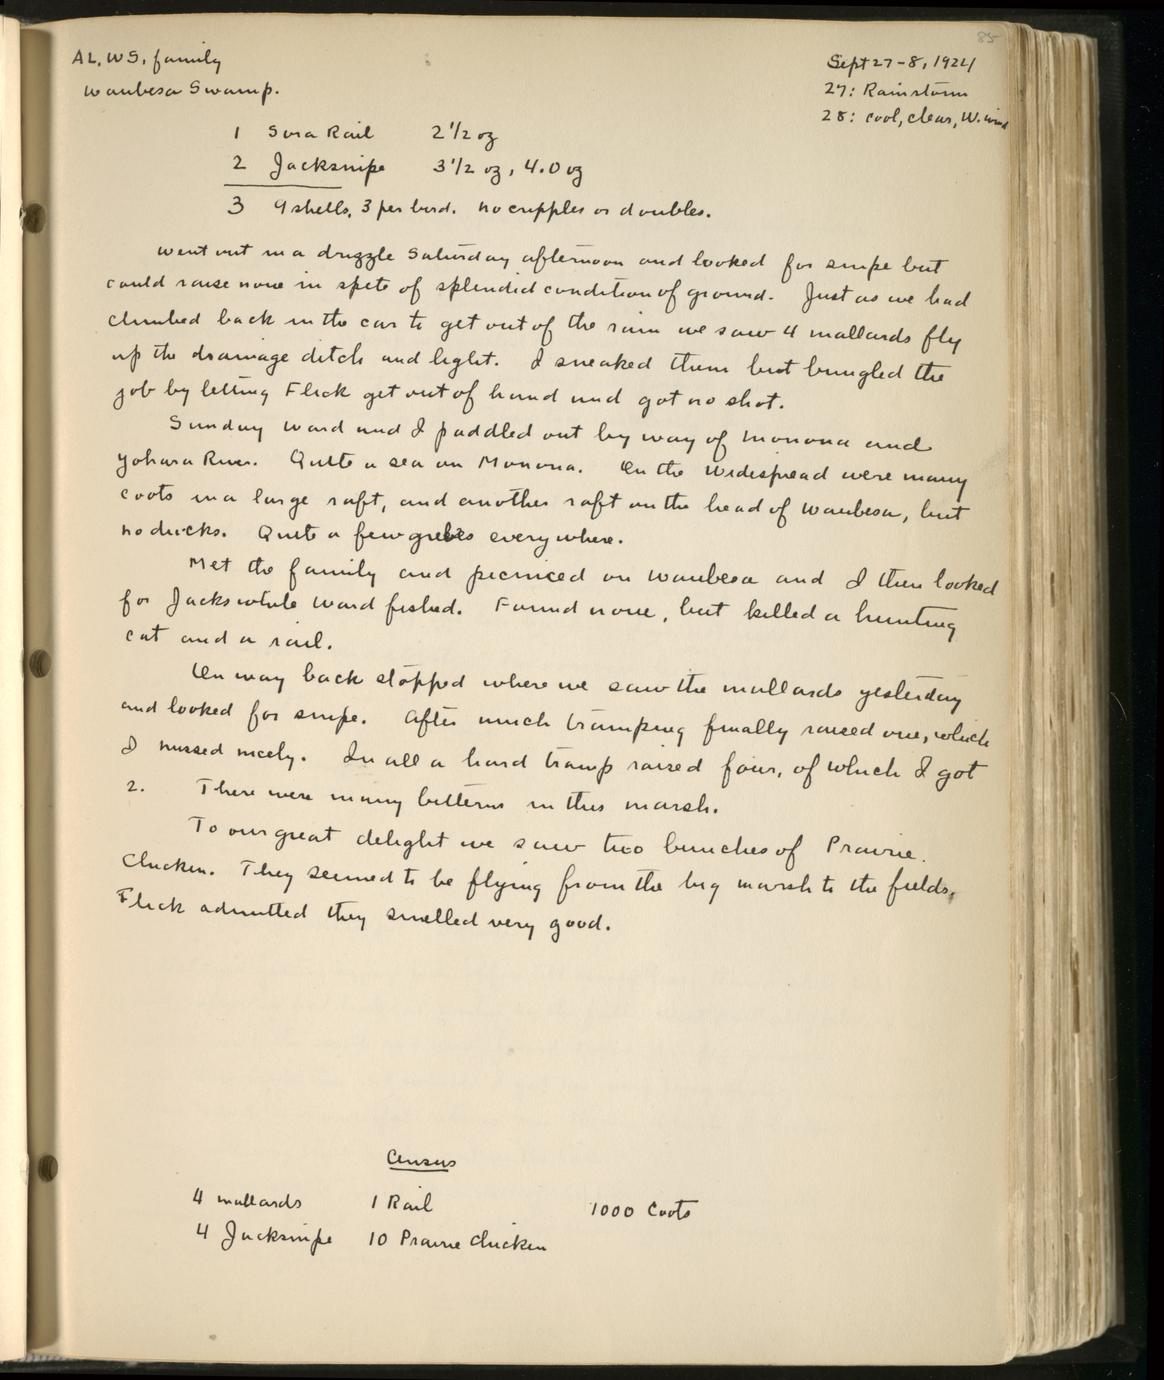 85
AL, WS, family
Waubesa Swamp.
Sept 27-8, 1924
27: Rainstorm
28: Cool, clear, W. wind
1 Sora Rail 2 1/2 oz
2 Jacksnipe 3 1/2 oz, 4.0 oz
3 9 shells, 3 per bird. No cripples or doubles.
Went out in a drizzle Saturday afternoon and looked for snipe but
could raise none in spite of splendid condition of ground. Just as we had
climbed back in the car to get out of the rain we saw 4 mallards fly
up the drainage ditch and light. I sneaked them but bungled the
job by letting Flick get out of hand and got no shot.
Sunday Ward and I paddled out by way of Monona and
Yahara River. Quite a sea on Monona. On the Widespread were many
coots in a large raft, and another raft on the head of Waubesa, but
no ducks. Quite a few grebes everywhere.
Met the family and picniced on Waubesa and I then looked
for Jacks while Ward fished. Found none, but killed a hunting
cat and a rail.
On way back stopped where we saw the mallards yesterday
and looked for snipe. After much tramping finally raised one, which
I missed nicely. In all a hard tramp raised four, of which I got
2. There were many bitterns in this marsh.
To our great delight we saw two bunches of Prairie
Chicken. They seemed to be flying from the big marsh to the fields.
Flick admitted they smelled very good.
Census
4 mallards 1 Rail 1000 Coots
4 Jacksnipe 10 Prairie Chicken